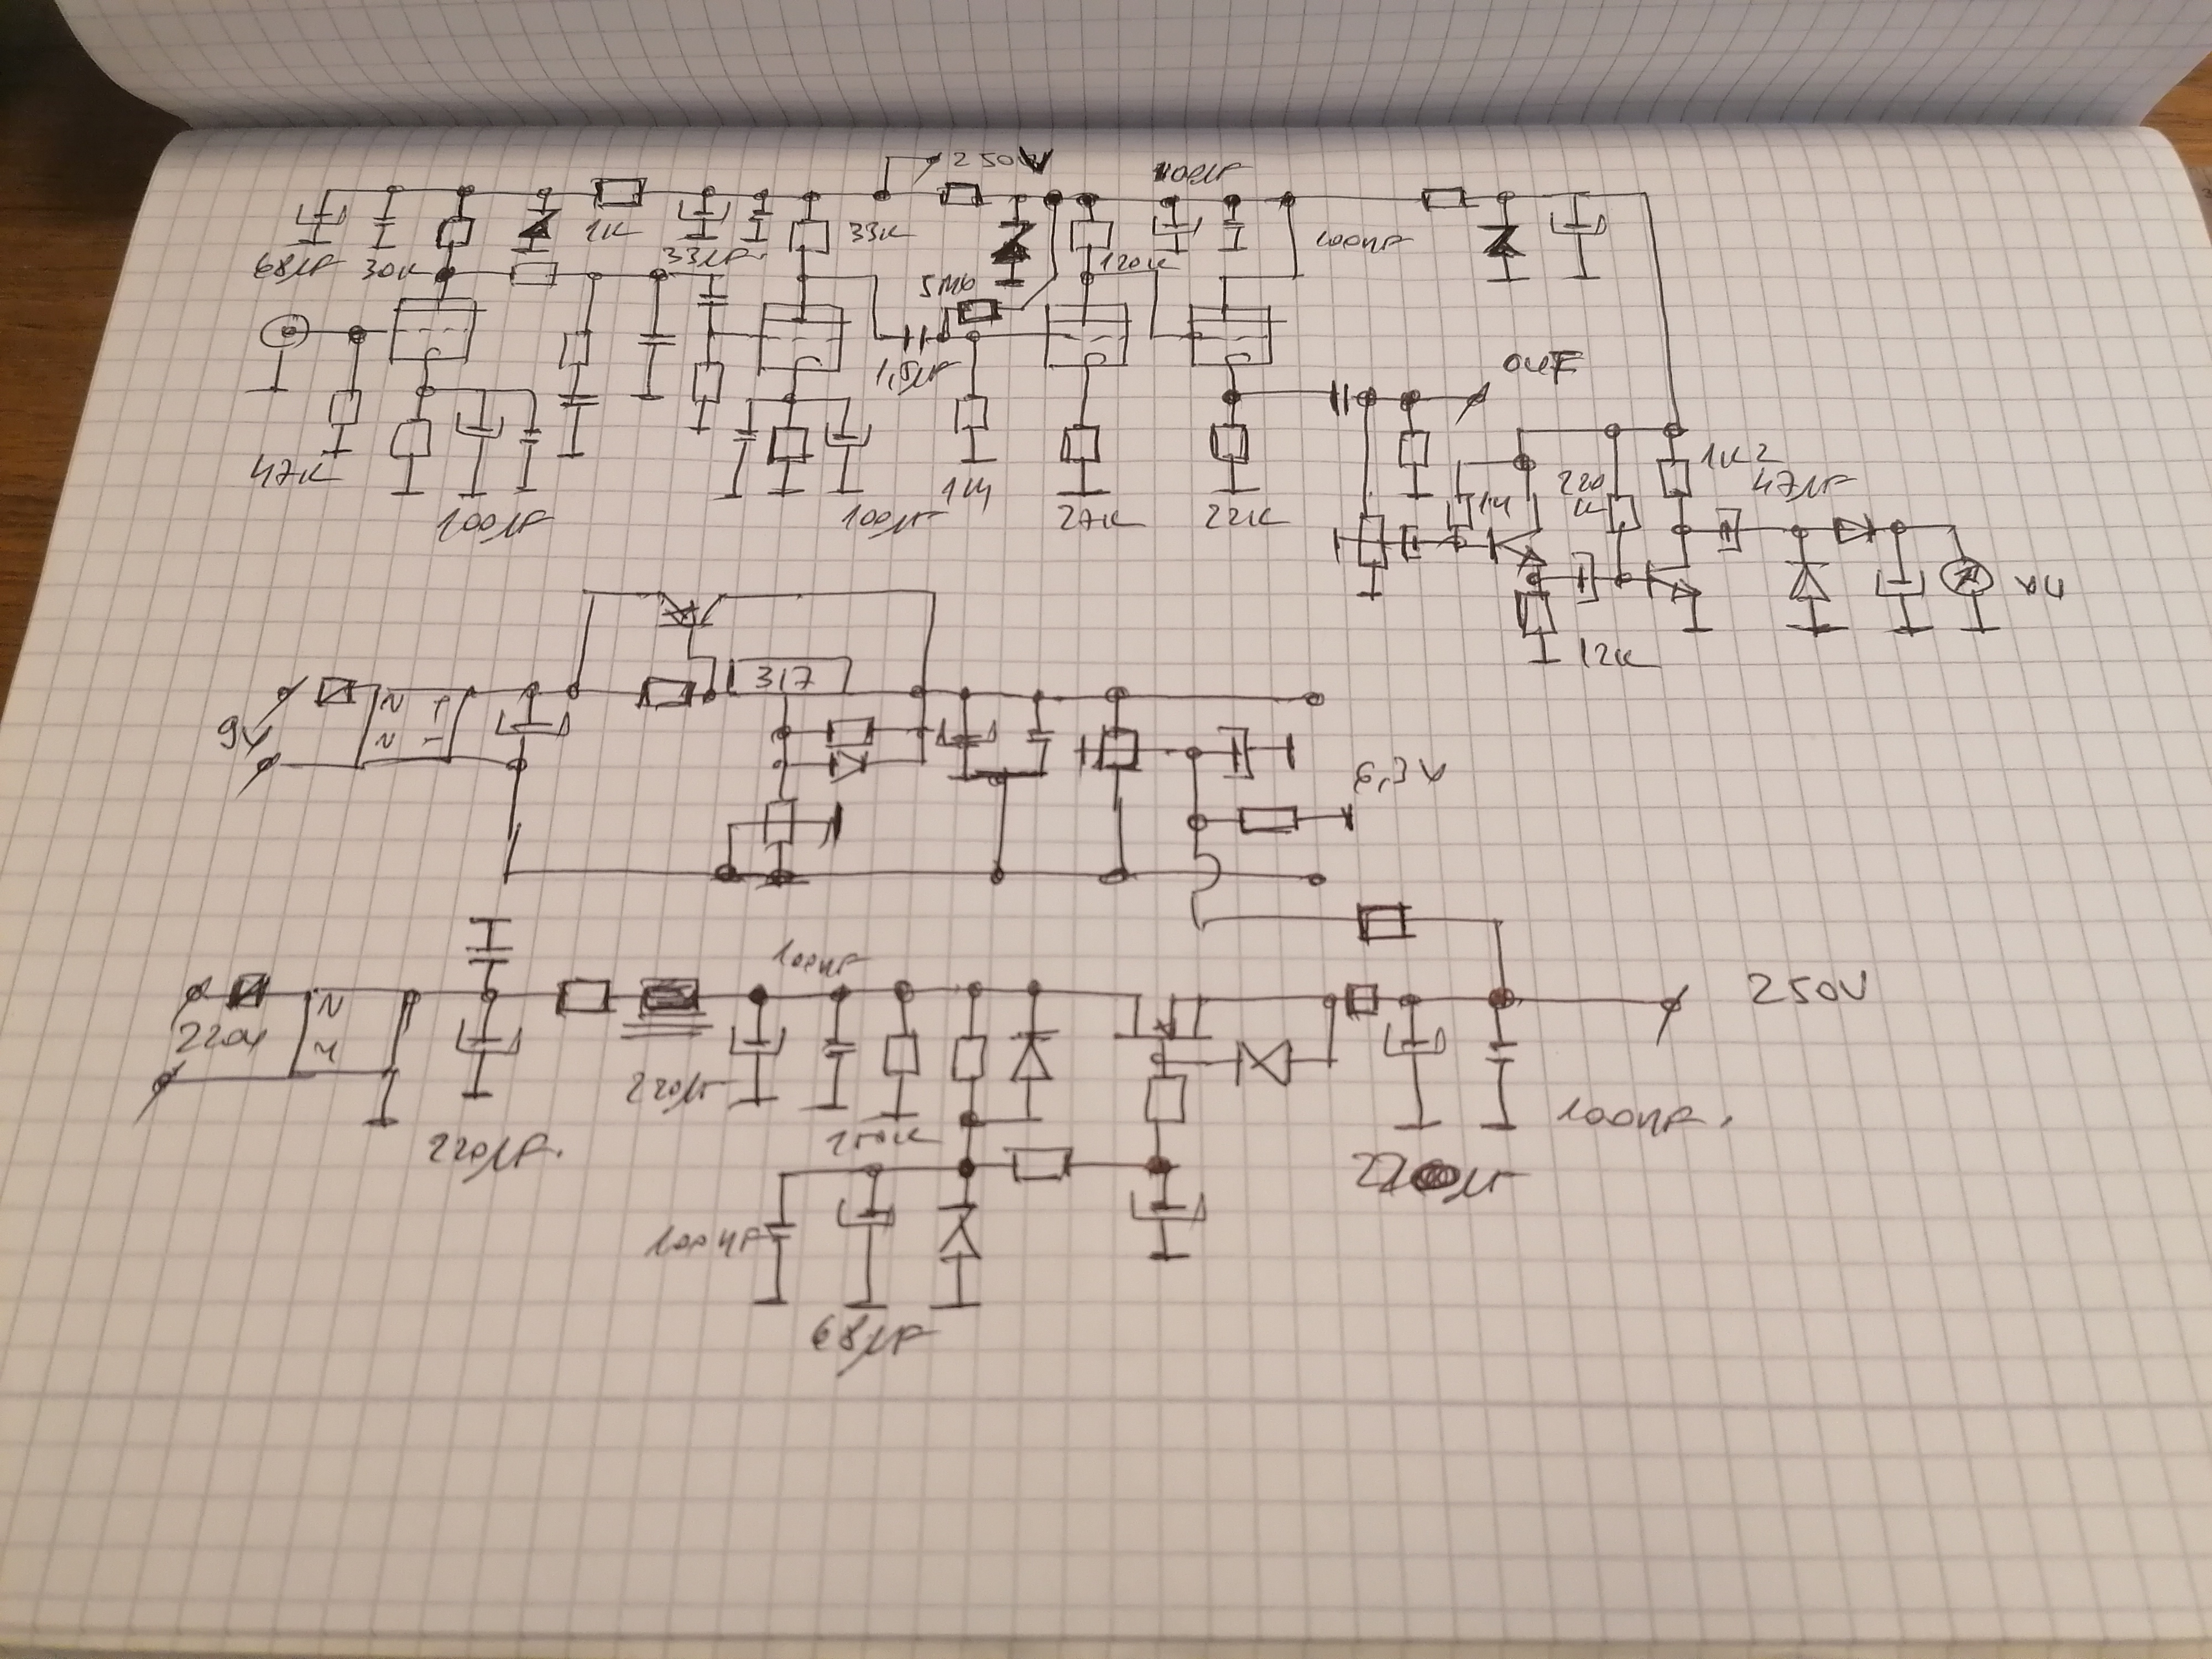 250V
100µF
68µF 30K 1K 33µF 33K 120K 100nF
5M6
1,5µF
OUT
47K 1M 220K 1K2 47µF
100µF 100µF 1M 27K 22K
VU
12K
317
9V ~ +
~ -
6,3V
100nF
220V ~
~
250V
220µF
220µF 150K 100nF
220µF
100nF
68µF